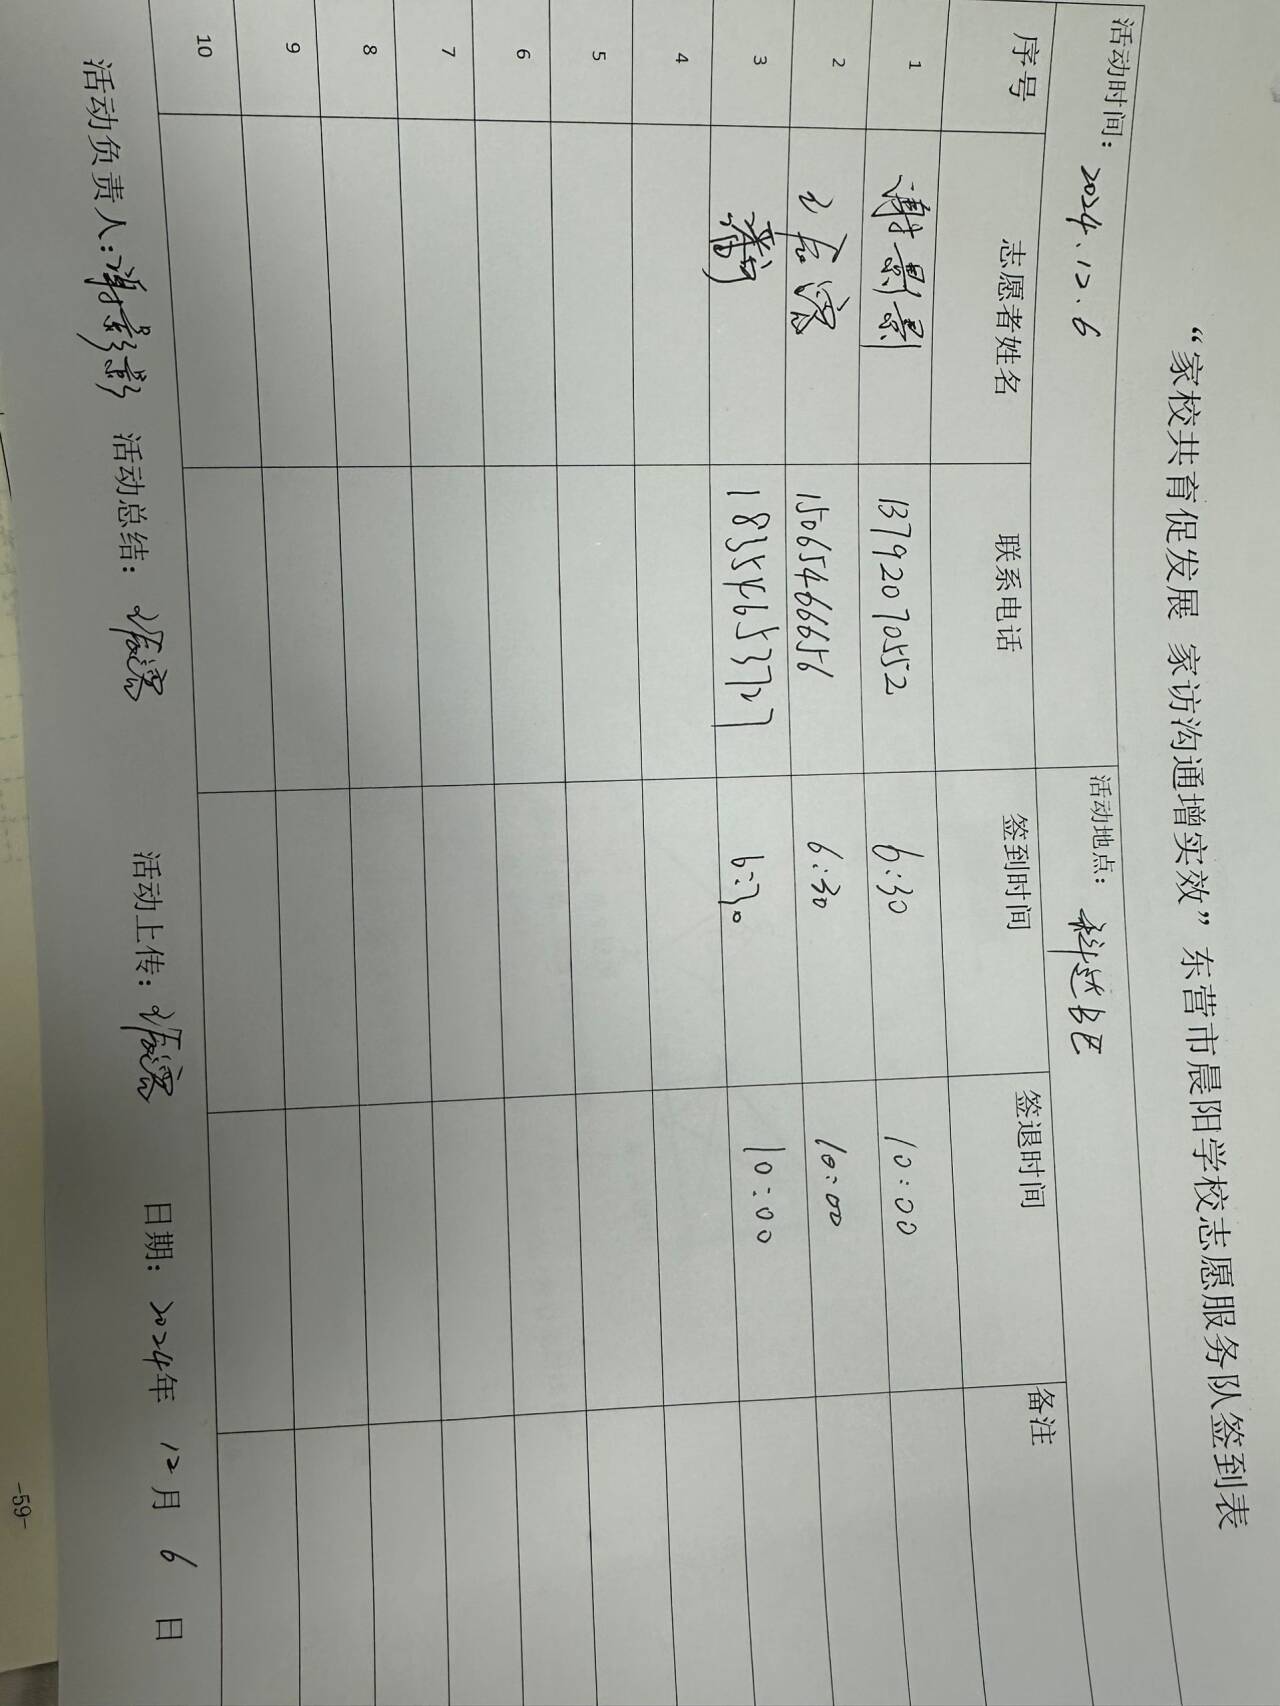 “家校共育促发展 家访沟通增实效”东营市晨阳学校志愿服务队签到表
活动时间：2024.12.6 活动地点：科达B区
序号 志愿者姓名 联系电话 签到时间 签退时间 备注
1 谢影影 13792070552 6:30 10:00
2 15065466656 6:30 10:00
3 18354653727 6:30 10:00
4
5
6
7
8
9
10
活动负责人：谢影影 活动总结： 活动上传： 日期：2024年 12月 6 日
-59-